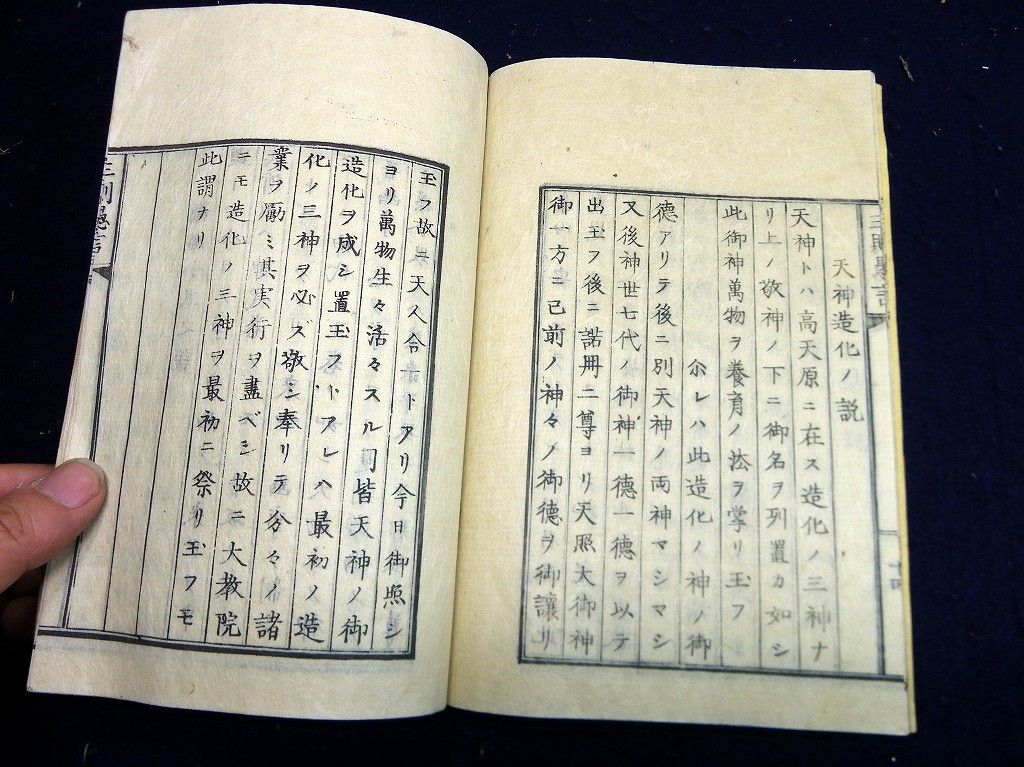 天神造化ノ説
天神トハ高天原ニ在ス造化ノ三神ナ
リ上ノ敬神ノ下ニ御名ヲ列置カ如シ
此御神萬物ヲ養育ノ法ヲ掌リ玉フ
尒レハ此造化ノ神ノ御
德アリテ後ニ別天神ノ両神マシマシ
又後神世七代ノ御神一德一德ヲ以テ
出玉フ後ニ諾冊二尊ヨリ天照大御神
御一方ニ已前ノ神々ノ御德ヲ御讓リ
玉フ故ニ天人合一トアリ今日御照シ
ヨリ萬物生々活々スル皆天神ノ御
造化ヲ成シ置玉フトアレハ最初ノ造
化ノ三神ヲ必ズ敬シ奉リテ分々イ諸
業ヲ励ミ其実行ヲ盡ベシ故ニ大教院
ニモ造化ノ三神ヲ最初ニ祭リ玉フモ
此謂ナリ